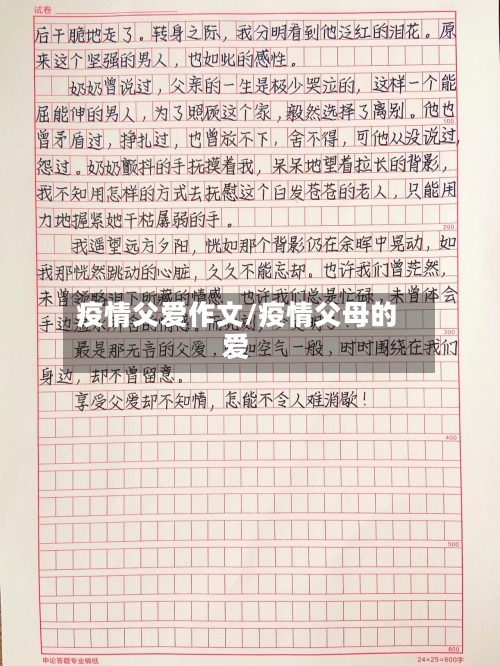 试卷
后干脆地走了。转身之际，我分明看到他泛红的泪花。原
来这个坚强的男人，也如此的感性。
奶奶曾说过，父亲的一生是极少哭泣的，这样一个能
屈能伸的男人，为了照顾这个家，毅然选择了离别。他也
100
曾矛盾过，挣扎过，也曾放不下，舍不得，可他从没说过，
怨过。奶奶颤抖的手抚摸着我，呆呆地望着拉长的背影，
我不知用怎样的方式去抚慰这个白发苍苍的老人，只能用
力地握紧她干枯孱弱的手。
200
我遥望远方夕阳，恍如那个背影仍在余晖中晃动，如
我那恍然跳动的心脏，久久不能忘却。也许我们曾茫然，
未曾领略泪下所藏的情感，也许我们总是忙碌，未曾体会
手边
疫情父爱作文/疫情父母的
爱
300
最是那无言的父爱，如空气一般，时时围绕在我们
身边，却不曾留意。
享受父爱却不知情，怎能不令人难消歇！
400
500
600
申论答题专业稿纸
24×25=600字